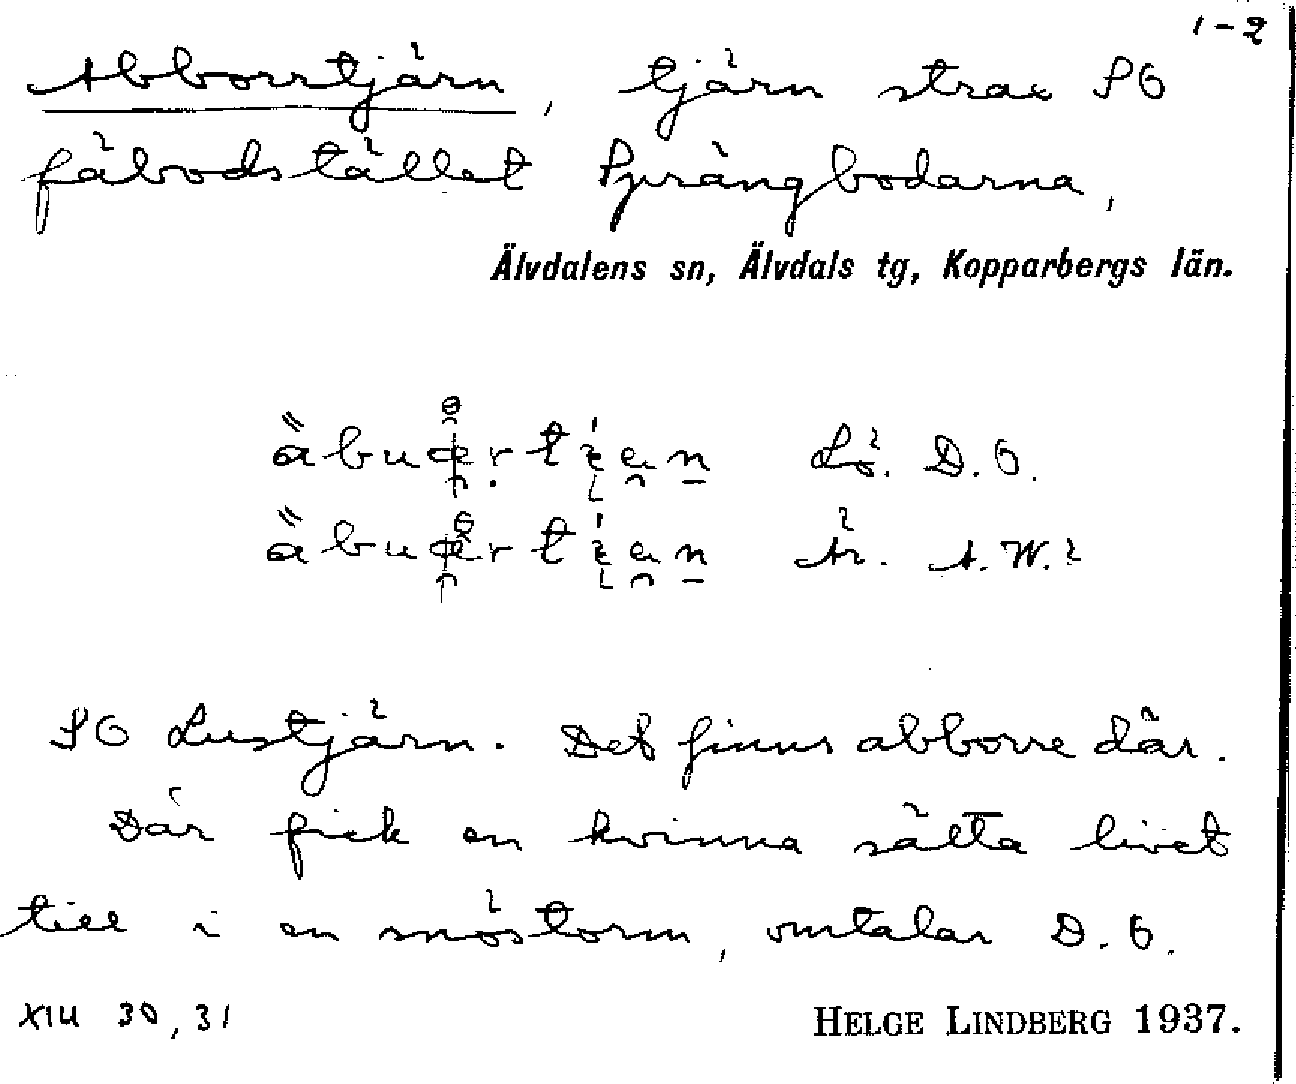 1-2
Abborrtjärn, tjärn strax SO
fäbodstället Sprängbodarna,
Älvdalens sn, Älvdals tg, Kopparbergs län.
Lö. D. O.
Är. A. W.
SO Lustjärn. Det finns abborre där.
Där fick en kvinna sätta livet
till i en snöstorm, omtalar D. O.
XIII 30, 31
HELGE LINDBERG 1937.